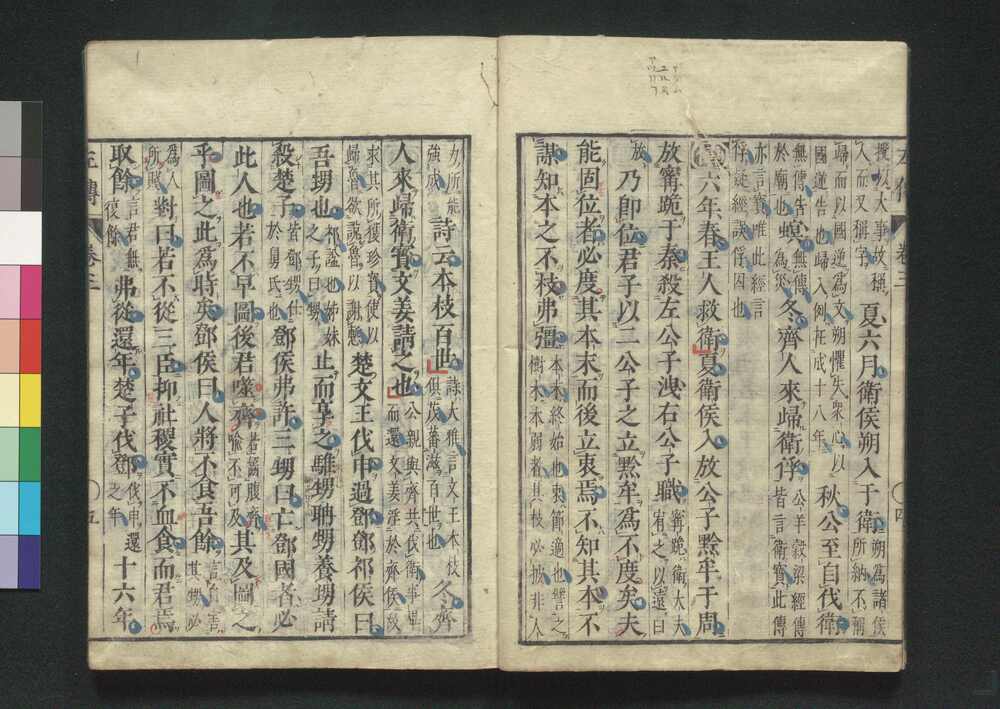 左傳 卷三 四
授以大事故稱人而又稱字 夏六月衛侯朔入于衛 朔爲諸侯所納不稱
歸而以國逆爲文朔懼失衆心以國逆告也歸入例在成十八年 秋公至自伐衛
無傳告於廟也 螟 無傳爲災 冬齊人來歸衛俘 公羊穀梁經傳皆言衛寶此傳
亦言寶唯此經言俘疑經誤俘囚也
傳六年春王人救衛夏衛侯入放公子黔牟于周
放甯跪于秦殺左公子洩右公子職 甯跪衛大夫宥之以遠曰
放 乃卽位君子以二公子之立黔牟爲不度矣夫
能固位者必度其本末而後立衷焉不知其本不
謀知本之不枝弗彊 本末終始也衷節適也譬之樹木本弱者其枝必披非人
力所能強成 詩云本枝百世 詩大雅言文王本枝俱茂蕃滋百世也 冬齊
人來歸衛寶文姜請之也 公親與齊共伐衛事畢而還文姜淫於齊侯故
求其所獲珍寶使以歸魯欲說魯以謝慙 楚文王伐申過鄧鄧祁侯曰
吾甥也 祁謚也姊妹之子曰甥 止而享之騅甥聃甥養甥請
殺楚子 皆鄧甥仕於舅氏也 鄧侯弗許三甥曰亡鄧國者必
此人也若不早圖後君噬齊 若齧腹齊喻不可及 其及圖之
乎圖之此爲時矣鄧侯曰人將不食吾餘 言自害其甥必
爲人所賤 對曰若不從三臣抑社稷實不血食而君焉
取餘 言君無復餘 弗從還年楚子伐鄧 伐申還之年 十六年
左傳 卷三 五